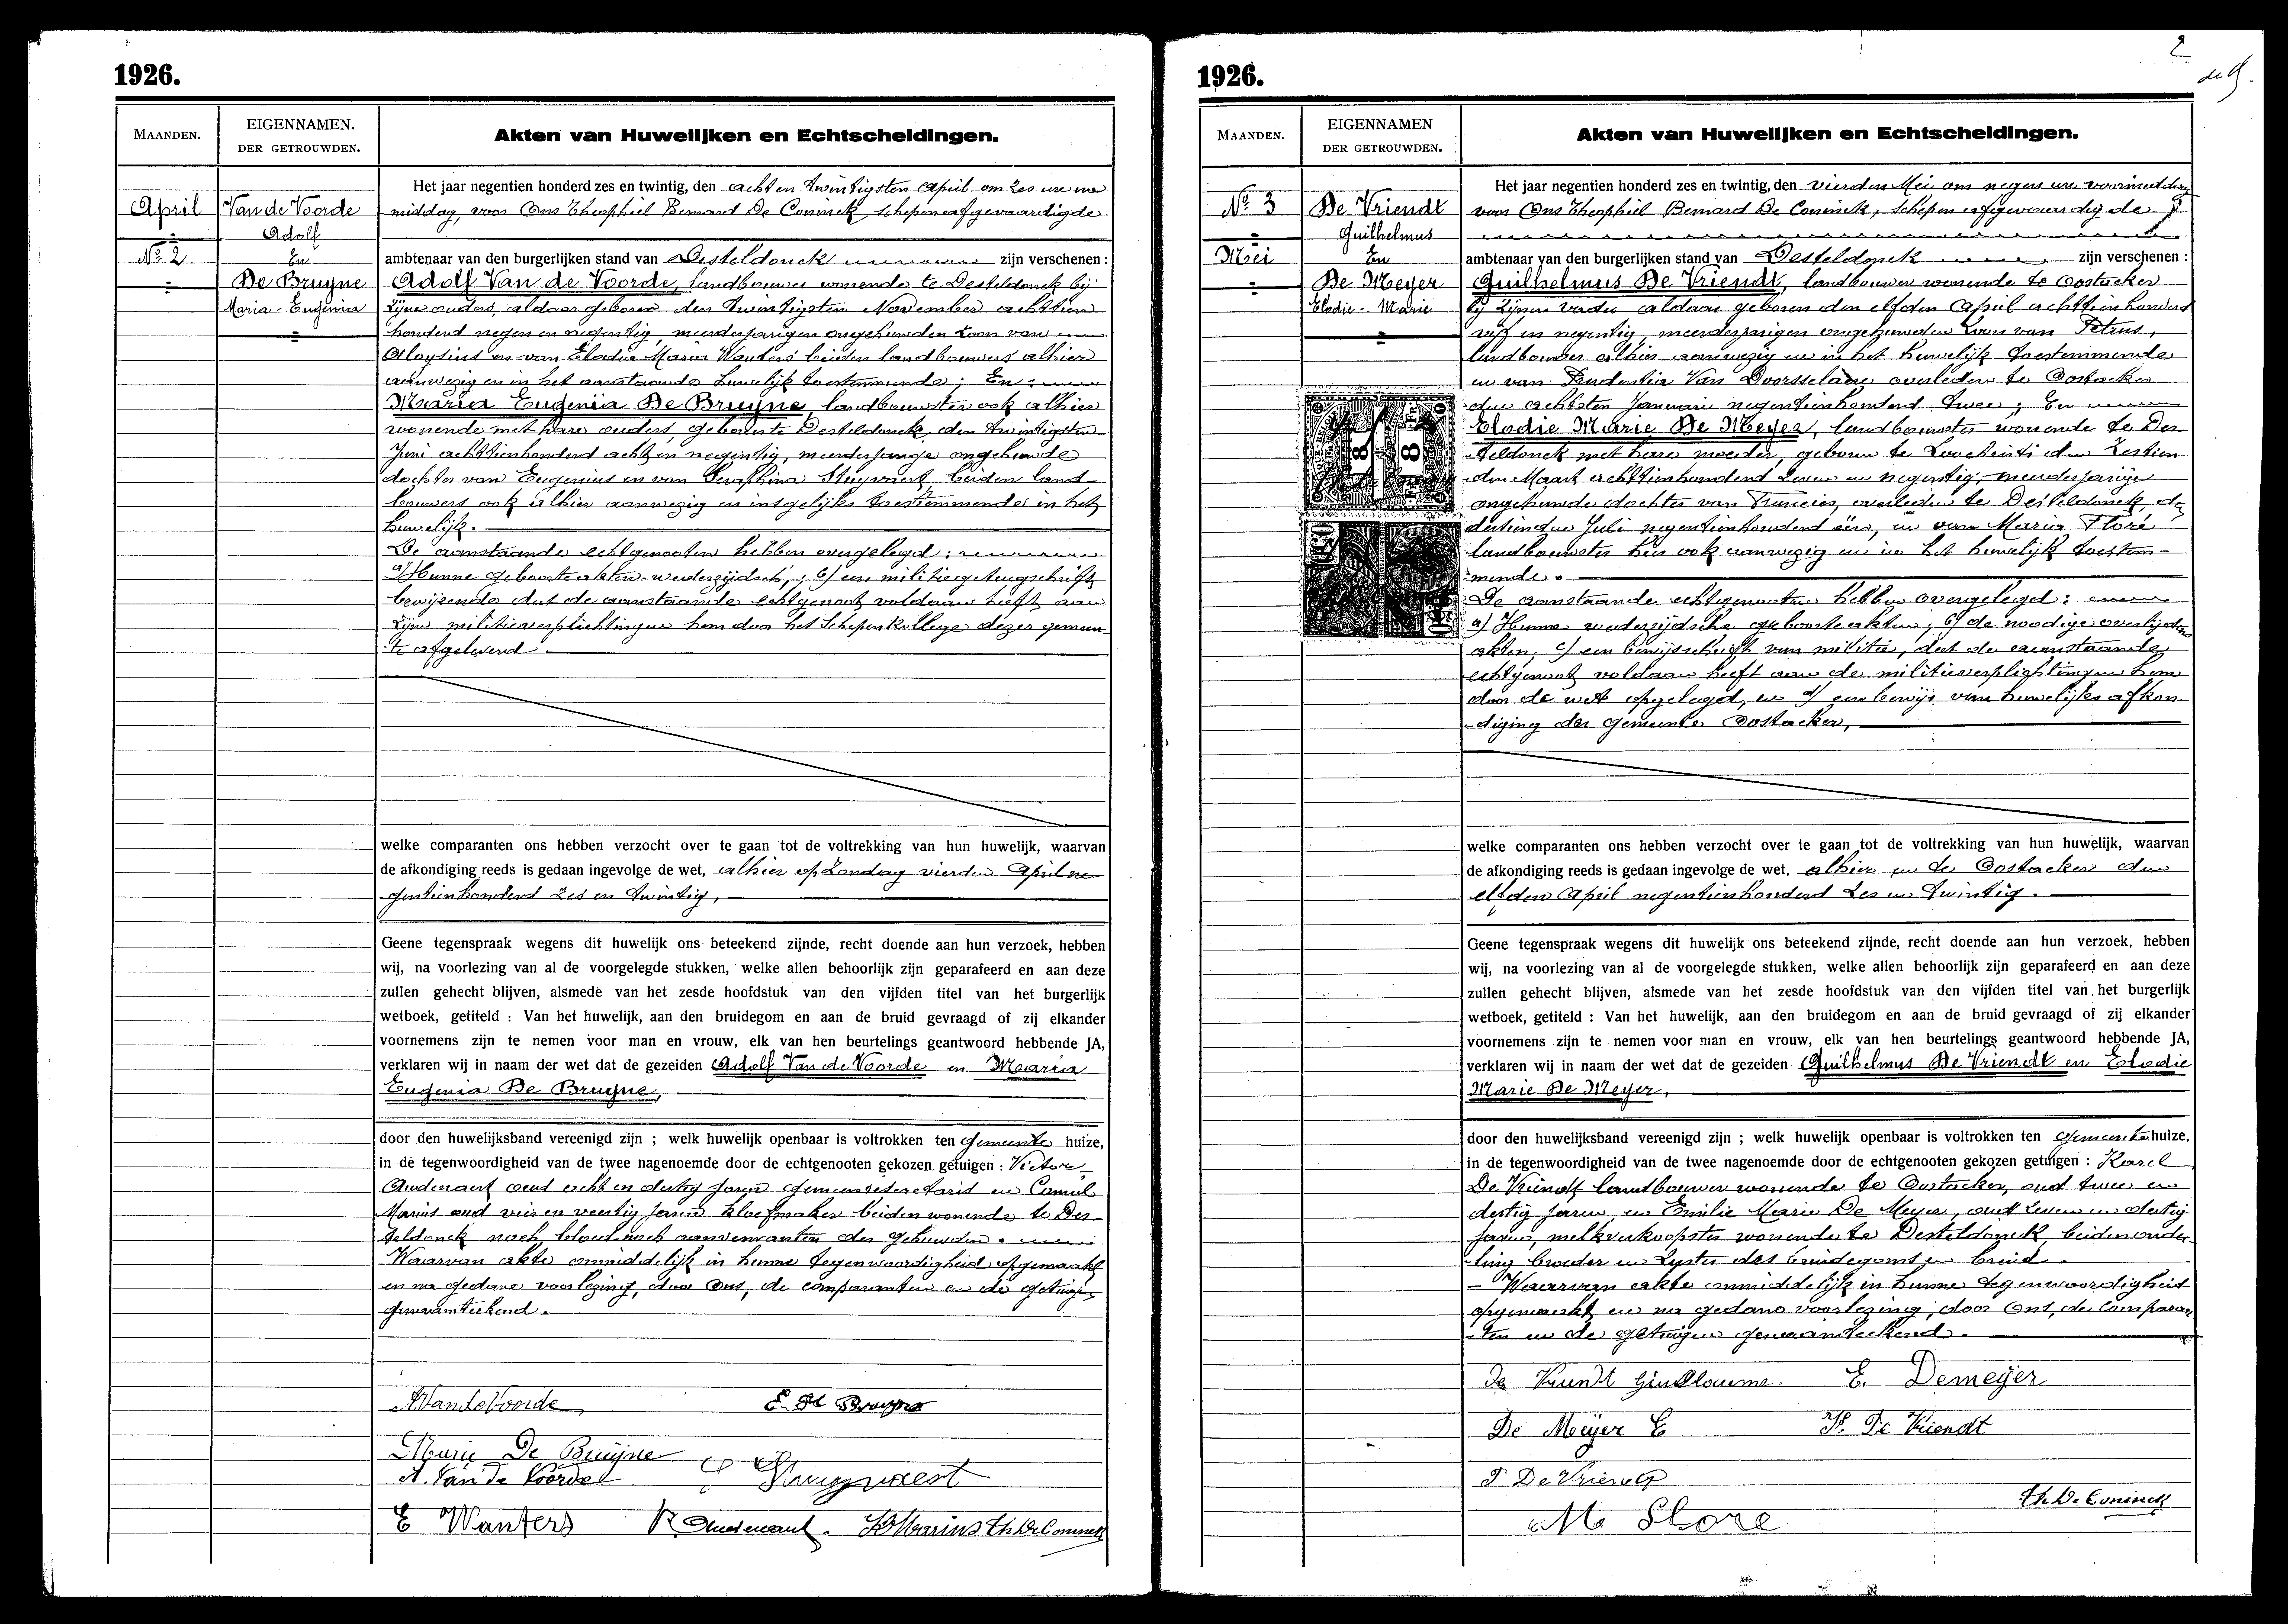 1926.
MAANDEN.
EIGENNAMEN.
DER GETROUWDEN.
Akten van Huwelijken en Echtscheidingen.
April
No 2
Van de Voorde
Adolf
En
De Bruyne
Maria-Eugenia
Het jaar negentien honderd zes en twintig, den acht en twintigsten April om zes ure na
middag, voor Ons Theophiel Bernard De Coninck, schepen afgevaardigde
ambtenaar van den burgerlijken stand van Desteldonck zijn verschenen :
Adolf Van de Voorde, landbouwer wonende te Desteldonck bij
zijne ouders, aldaar geboren den twintigsten November achttien
honderd negen en negentig, meerderjarigen ongehuwden zoon van
Aloysius en van Elodia Maria Wauters beiden landbouwers alhier
aanwezig en in het aanstaande huwelijk toestemmende ; En :
Maria Eugenia De Bruyne, landbouwster ook alhier
wonende met hare ouders, geboren te Desteldonck, den twintigsten
Juni achttienhonderd acht en negentig, meerderjarige ongehuwde
dochter van Eugenius en van Seraphina Stuyvaert, beiden land
bouwers ook alhier aanwezig en insgelijks toestemmende in het
huwelijk.
De aanstaande echtgenooten hebben overgelegd :
a) Hunne geboorteakten wederzijdsch, ; b) een militiegetuigschrift
bewijzende dat de aanstaande echtgenoot voldaan heeft aan
zijne militieverplichtingen hem door het Schepenkollege dezer gemeen-
te afgeleverd.
welke comparanten ons hebben verzocht over te gaan tot de voltrekking van hun huwelijk, waarvan
de afkondiging reeds is gedaan ingevolge de wet, alhier op Zondag vierden April ne-
gentienhonderd zes en twintig,
Geene tegenspraak wegens dit huwelijk ons beteekend zijnde, recht doende aan hun verzoek, hebben
wij, na voorlezing van al de voorgelegde stukken, welke allen behoorlijk zijn geparafeerd en aan deze
zullen gehecht blijven, alsmede van het zesde hoofdstuk van den vijfden titel van het burgerlijk
wetboek, getiteld : Van het huwelijk, aan den bruidegom en aan de bruid gevraagd of zij elkander
voornemens zijn te nemen voor man en vrouw, elk van hen beurtelings geantwoord hebbende JA,
verklaren wij in naam der wet dat de gezeiden Adolf Van de Voorde en Maaria
Eugenia De Bruyne,
door den huwelijksband vereenigd zijn ; welk huwelijk openbaar is voltrokken ten gemeente huize,
in de tegenwoordigheid van de twee nagenoemde door de echtgenooten gekozen getuigen : Victor
Oudenaert oud acht en dertig jaren gemeentesecretaris en Camiel
Marius oud vier en veertig jaren kloefmaker beiden wonende te Des-
teldonck noch bloed noch aanverwanten der gehuwden.
Waarvan akte onmiddelijk in hunne tegenwoordigheid opgemaakt
en na gedane voorlezing, door Ons, de comparanten en de getuigen
genaamteekend.
A Van de Voorde
E. De Bruyne
Marie De Bruyne
A. Van De Voorde
E Wauters
Th De Coninck
1926.
2
MAANDEN.
EIGENNAMEN
DER GETROUWDEN.
Akten van Huwelijken en Echtscheidingen.
No 3
Mei
De Vriendt
Guilhelmus
En
De Meyer
Elodie-Marie
8 FR
8 FR
Het jaar negentien honderd zes en twintig, den vierden Mei om negen ure voormiddag
voor Ons Theophiel Bernard De Coninck, schepen afgevaardigde
ambtenaar van den burgerlijken stand van Desteldonck zijn verschenen :
Guilhelmus De Vriendt, landbouwer wonende te Oostacker
bij zijnen vader aldaar geboren den elfden April achttienhonderd
vijf en negentig, meerderjarigen ongehuwden zoon van Petrus,
landbouwer alhier aanwezig en in het huwelijk toestemmende
en van Prudentia Van Doorsselaere overleden te Oostacker
den achtsten Januari negentienhonderd twee ; En
Elodie Marie De Meyer, landbouwster wonende te Des-
teldonck met hare moeder, geboren te Loochristi den zestien
den Maart achttienhonderd zeven en negentig, meerderjarige
ongehuwde dochter van Francies, overleden te Desteldonck, den
dertienden Juli negentienhonderd één, en van Maria Floré
landbouwster hier ook aanwezig en in het huwelijk toestem-
mende.
De aanstaande echtgenooten hebben overgelegd :
a) Hunne wederzijdsche geboorteakten ; b) de noodige overlijdens
akten, c) een bewijsschrift van militie, dat de aanstaande
echtgenoot voldaan heeft aan de militieverplichtingen hem
door de wet opgelegd, en d) een bewijs van huwelijks afkon-
diging der gemeente Oostacker,
welke comparanten ons hebben verzocht over te gaan tot de voltrekking van hun huwelijk, waarvan
de afkondiging reeds is gedaan ingevolge de wet, alhier en te Oostacker den
elfden April negentienhonderd zes en twintig.
Geene tegenspraak wegens dit huwelijk ons beteekend zijnde, recht doende aan hun verzoek, hebben
wij, na voorlezing van al de voorgelegde stukken, welke allen behoorlijk zijn geparafeerd en aan deze
zullen gehecht blijven, alsmede van het zesde hoofdstuk van den vijfden titel van het burgerlijk
wetboek, getiteld : Van het huwelijk, aan den bruidegom en aan de bruid gevraagd of zij elkander
voornemens zijn te nemen voor man en vrouw, elk van hen beurtelings geantwoord hebbende JA,
verklaren wij in naam der wet dat de gezeiden Guilhelmus De Vriendt en Elodie
Marie De Meyer,
door den huwelijksband vereenigd zijn ; welk huwelijk openbaar is voltrokken ten gemeentehuize,
in de tegenwoordigheid van de twee nagenoemde door de echtgenooten gekozen getuigen : Karel
De Vriendt landbouwer wonende te Oostacker, oud twee en
dertig jaren en Emilie Marie De Meyer, oud zeven en dertig
jaren, melkverkoopster wonende te Desteldonck, beiden onder-
ling broeder en zuster des bruidegoms en bruid.
- Waarvan akte onmiddelijk in hunne tegenwoordigheid
opgemaakt en na gedane voorlezing, door Ons, de comparan
ten en de getuigen genaamteekend.
De Vriendt Guillaume.
E. Demeyer
De Meÿer E
De Vriendt
De Vriendt
Th. De Coninck
M Flore